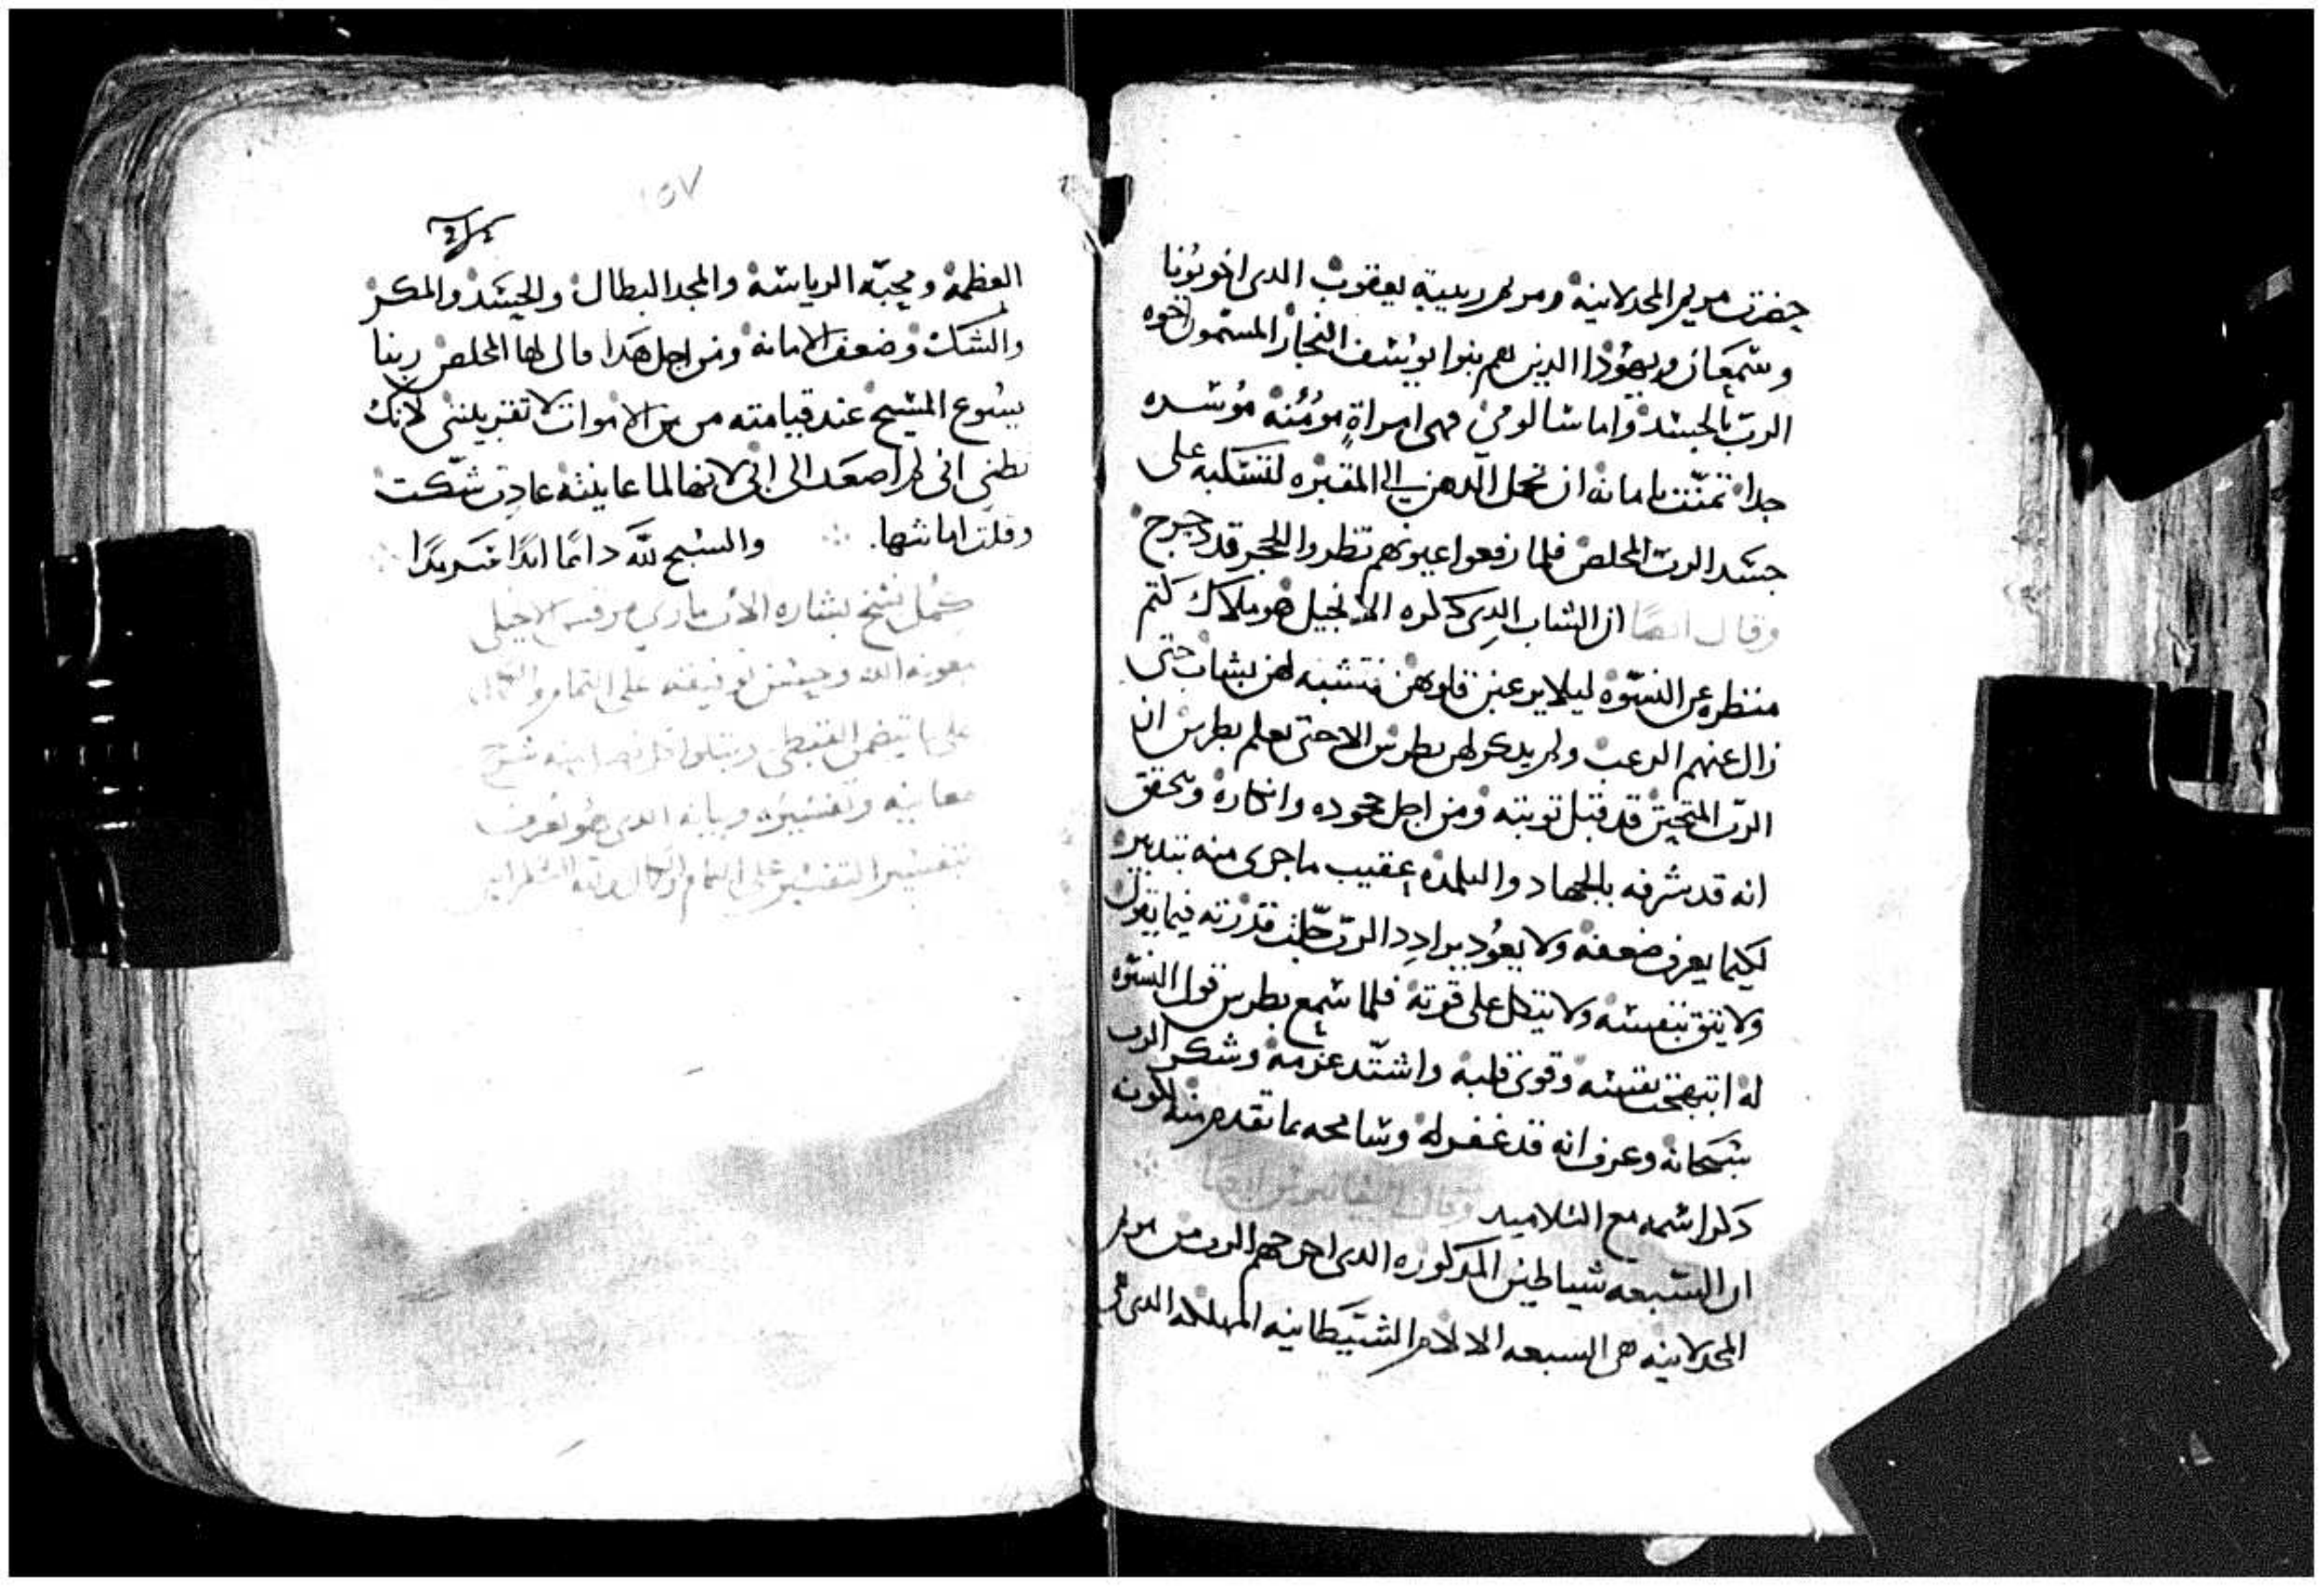 حضرت مريم المجدلانية ومريم ربيبة يعقوب الدى اخو يونا
وسمعان ويهودا الدين هم بنوا يوسف النجار المسمون اخوه
الرب بالجسد واما سالومى فهى امراة مومنة موسره
جدا تمنت بامانة ان تحمل الدهن الى المقبره لتسكبه على
جسد الرب المخلص فلما رفعوا عيونهم نظروا الحجر قد دحرج
وقال ايضا ان الشاب الدى دكره الانجيل هو ملاك كتم
منظره عن النسوة ليلا يرعبن قلوبهن فتشبه لهن بشاب حتى
زال عنهم الرعب ولم يدكر لهن بطرس الا حتى يعلم بطرس ان
الرب المتحنن قد قبل توبته ومن اجل جحوده وانكاره وتحقق
انه قد شرفه بالجهاد والتلمدة عقيب ما جرى منه بتدبير
لكيما يعرف ضعفه ولا يعود يرادد الرب جلت قدرته فيما يقول
ولا يثق بنفسه ولا يتكل على قوته فلما سمع بطرس قول النسوه
له ابتهجت نفسه وقوى قلبه واشتد عزمه وشكر الرب
سبحانه وعرف انه قد غفر له وسامحه بما تقدم منه لكونه
دكر اسمه مع التلاميد وقال ايضا
ان السبعه شياطين المدكوره الدى اخرجهم الرب من مريم
المجدلانيه هى السبعه الالام الشيطانيه المهلكه الدى هى
١٥٧
العظمة ومحبة الرياسة والمجد البطال والحسد والمكر
والشك وضعف الامانة ومن اجل هدا قال لها المخلص ربنا
يسوع المسيح عند قيامته من بين الاموات لا تقتربلننى لانك
تظنى انى لم اصعد الى ابى لانها لما عاينته عادت شكت
وقلت امانتها. والسبح لله دائما ابدا سرمدا
كمل نسخ بشاره الاب مارى مرقس الانجيلى
بمعونة الله وحسن توفيقه على التمام والكمال
على ما يتضمن القبطى ويتلوا شرح
معانيه وتفسيره وبيانه الدى هو يعرف
بتفسير التفسير على التمام والكمال